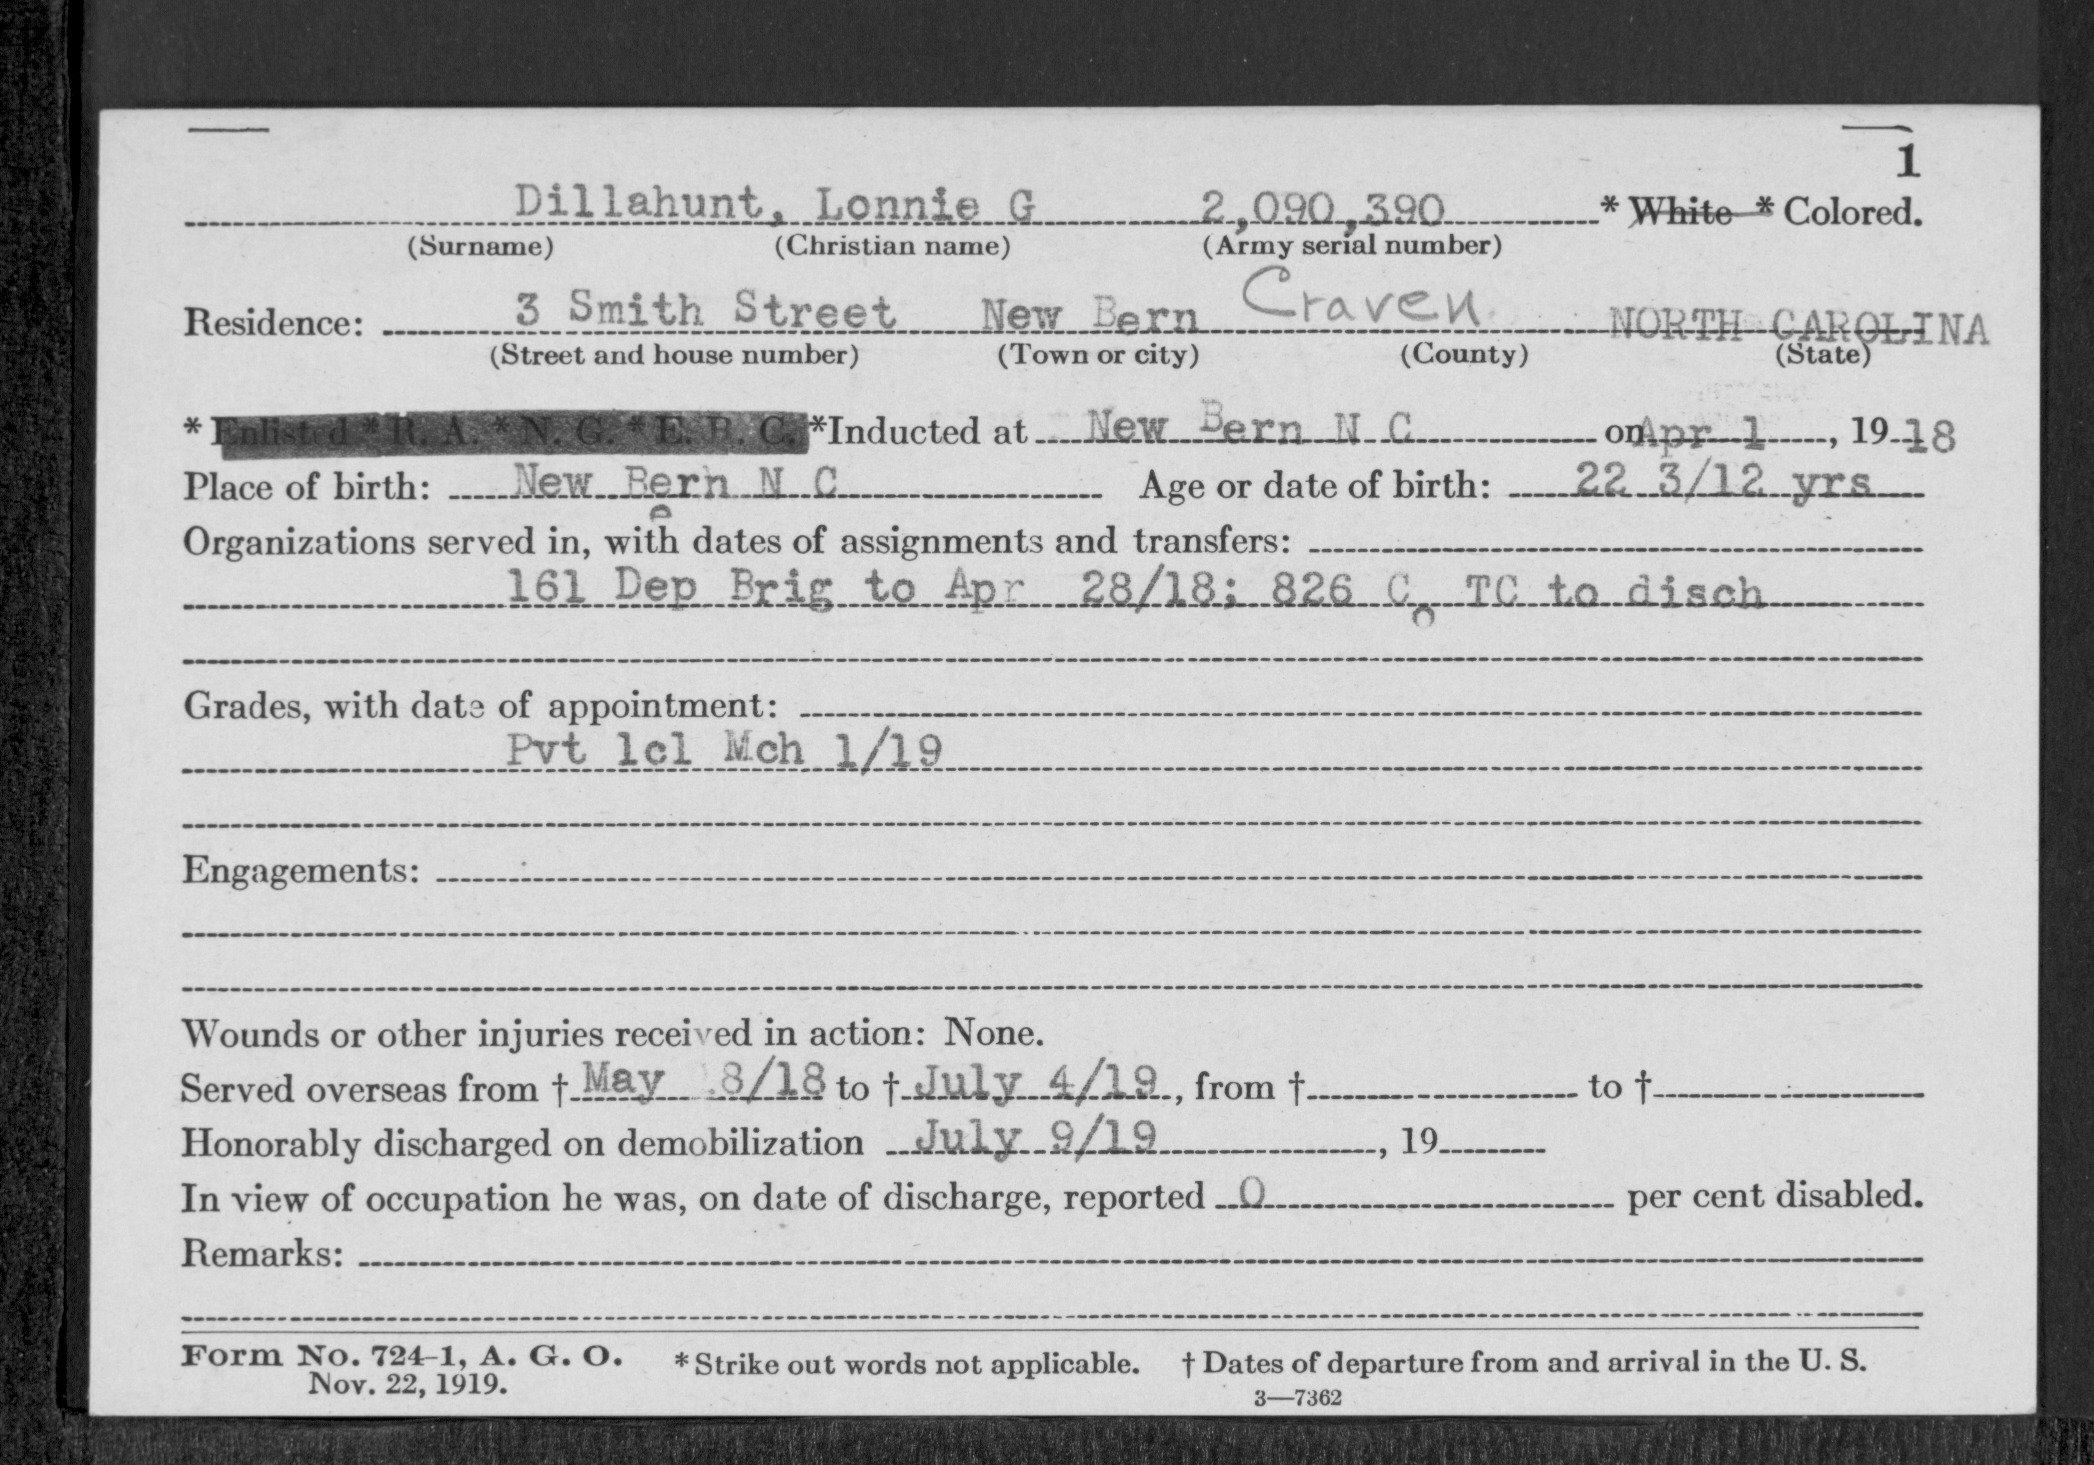 1
Dillahunt, Lonnie G 2,090,390 * White * Colored.
(Surname) (Christian name) (Army serial number)
Residence: 3 Smith Street New Bern Craven NORTH CAROLINA
(Street and house number) (Town or city) (County) (State)
* Enlisted * R. A. * N. G. * E. R. C. *Inducted at New Bern N C on Apr 1, 19 18
Place of birth: New Bern N C Age or date of birth: 22 3/12 yrs
Organizations served in, with dates of assignments and transfers:
161 Dep Brig to Apr 28/18; 826 Co TC to disch
Grades, with date of appointment:
Pvt 1cl Mch 1/19
Engagements:
Wounds or other injuries received in action: None.
Served overseas from † May 8/18 to † July 4/19, from † to †
Honorably discharged on demobilization July 9/19, 19
In view of occupation he was, on date of discharge, reported 0 per cent disabled.
Remarks:
Form No. 724-1, A. G. O. * Strike out words not applicable. † Dates of departure from and arrival in the U. S.
Nov. 22, 1919. 3—7362